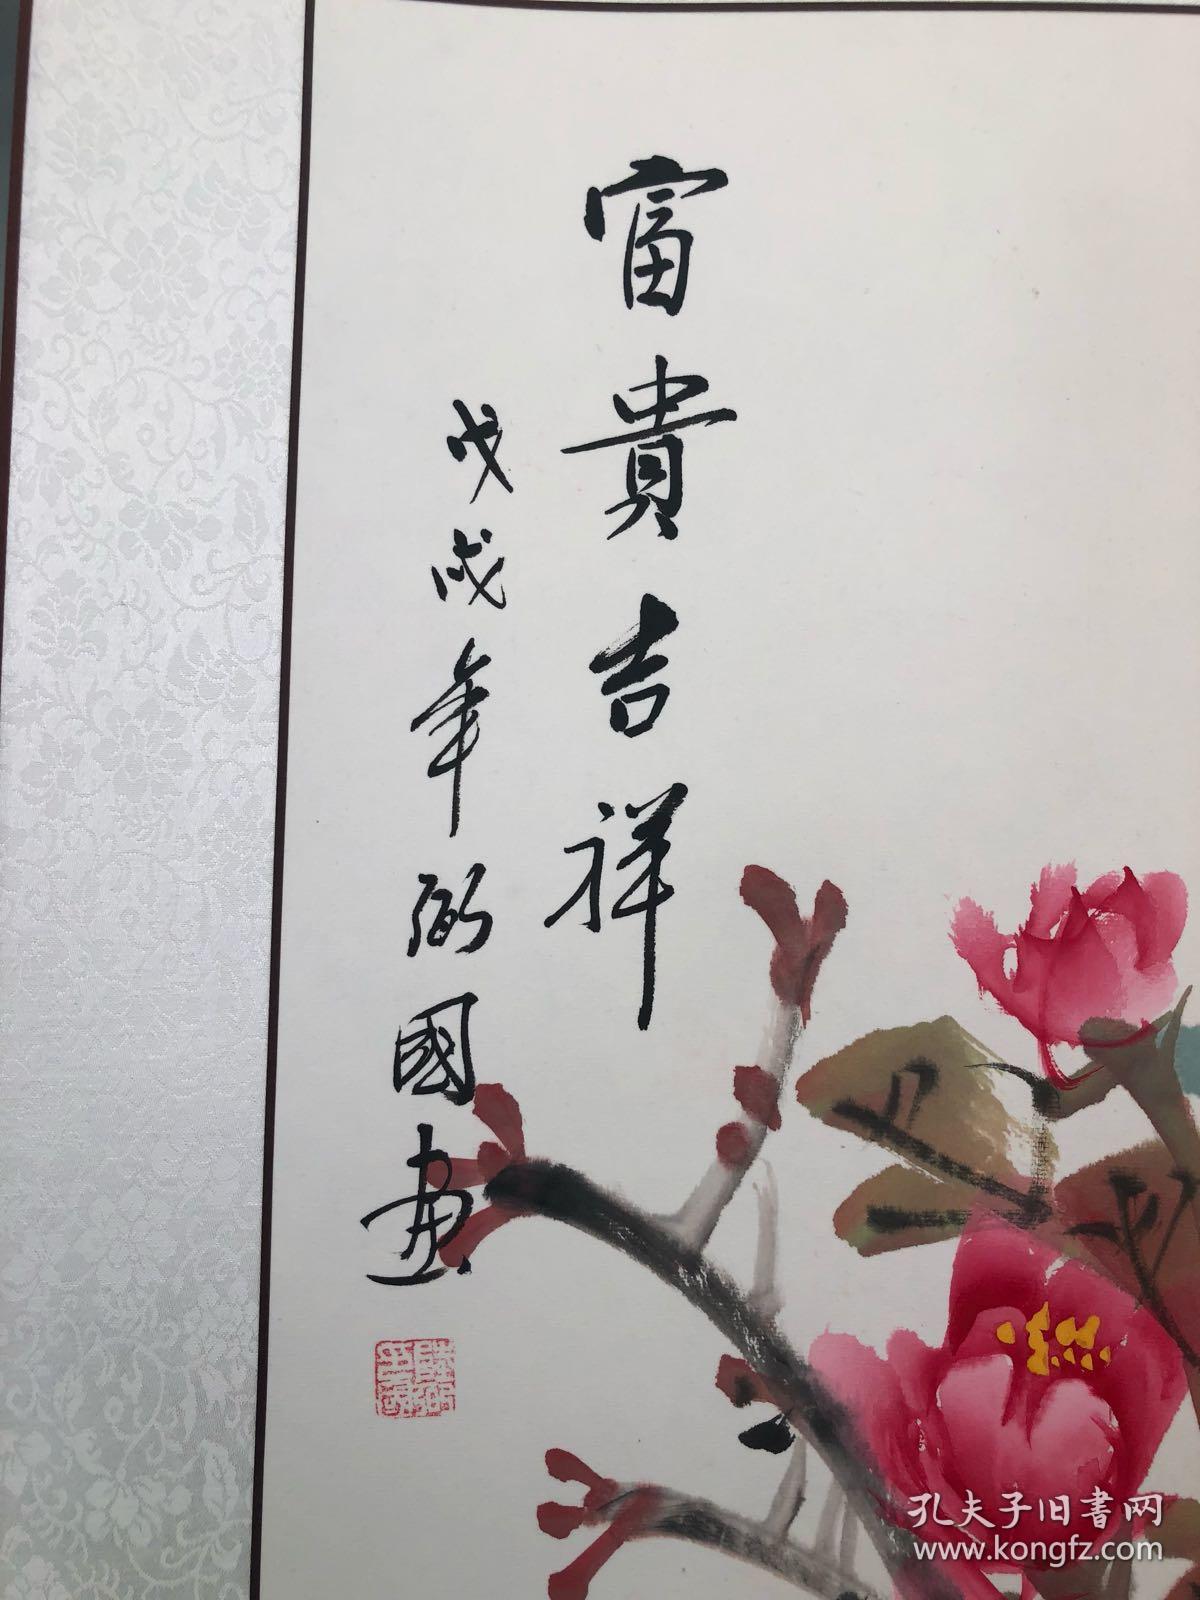 富貴吉祥
戊戌年弼國畫
孔夫子旧書网
www.kongfz.com